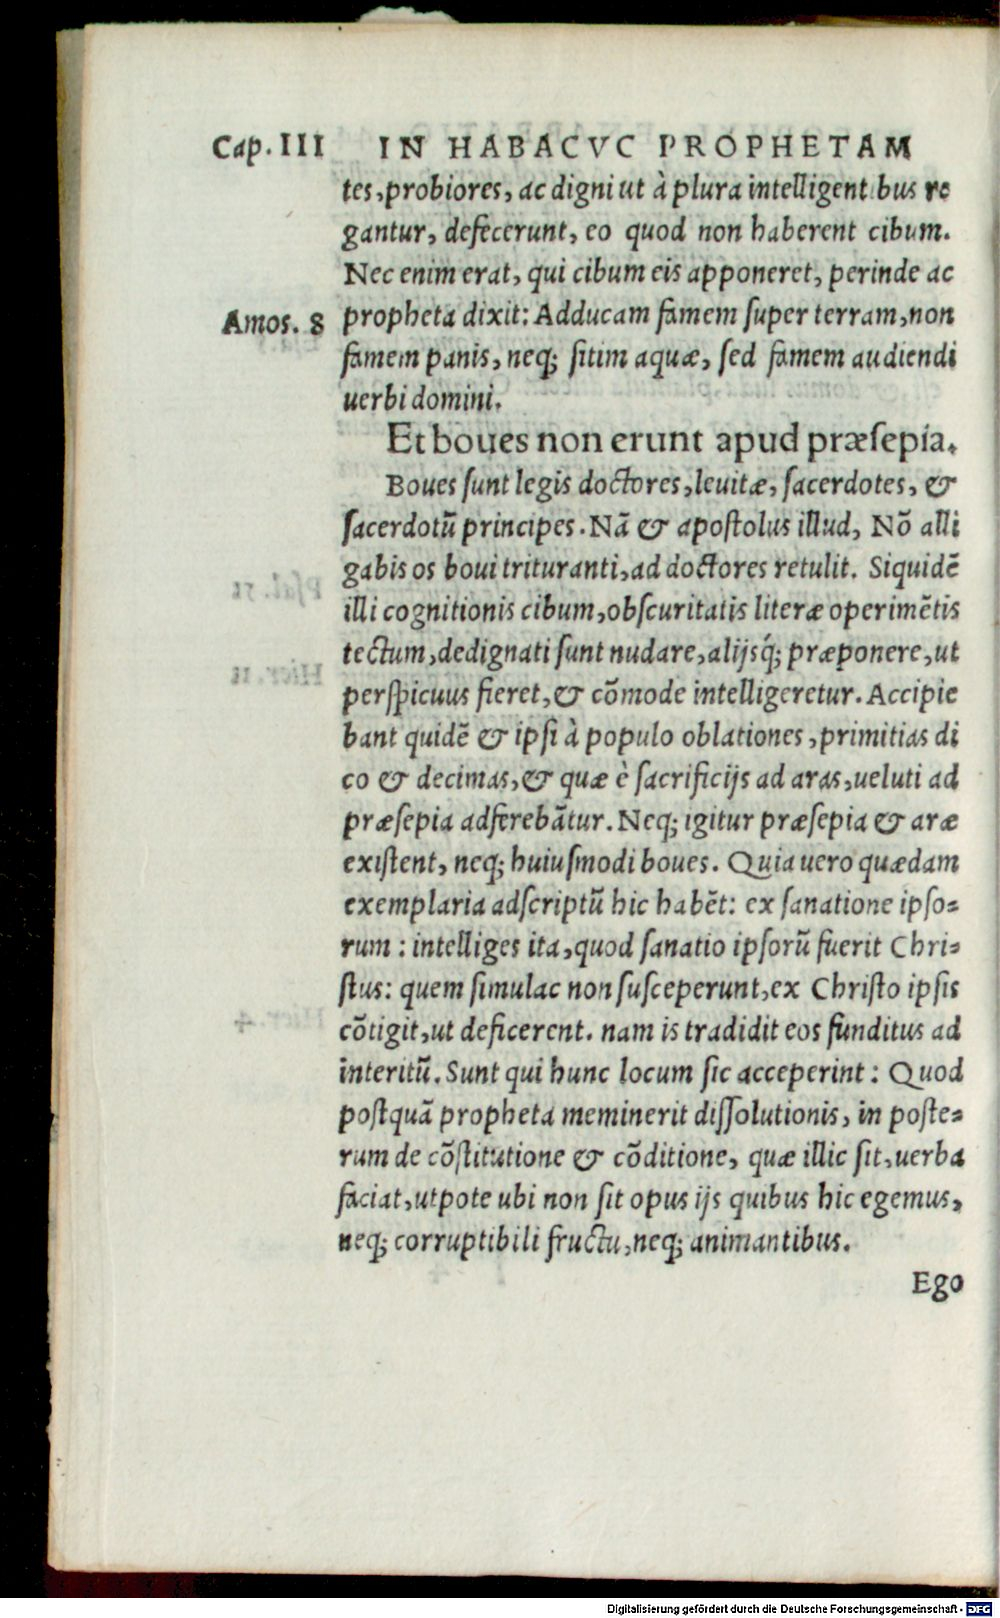 Cap. III IN HABACVC PROPHETAM
tes, probiores, ac digni ut à plura intelligent bus re
gantur, defecerunt, eo quod non haberent cibum.
Nec enim erat, qui cibum eis apponeret, perinde ac
Amos. 8 propheta dixit: Adducam famem ſuper terram, non
famem panis, neq; ſitim aquæ, ſed famem audiendi
uerbi domini.
Et boues non erunt apud præſepia.
Boues ſunt legis doctores, leuitæ, ſacerdotes, &
ſacerdotũ principes. Nã & apoſtolus illud, Nõ alli
gabis os boui trituranti, ad doctores retulit. Siquidẽ
illi cognitionis cibum, obſcuritatis literæ operimẽtis
tectum, dedignati ſunt nudare, alijsq́; præponere, ut
perſpicuus fieret, & cõmode intelligeretur. Accipie
bant quidẽ & ipſi à populo oblationes, primitias di
co & decimas, & quæ è ſacrificijs ad aras, ueluti ad
præſepia adferebãtur. Neq; igitur præſepia & aræ
exiſtent, neq; huiuſmodi boues. Quia uero quædam
exemplaria adſcriptũ hic habẽt: ex ſanatione ipſo=
rum: intelliges ita, quod ſanatio ipſorũ fuerit Chri=
ſtus: quem ſimulac non ſuſceperunt, ex Chriſto ipſis
cõtigit, ut deficerent. nam is tradidit eos funditus ad
interitũ. Sunt qui hunc locum ſic acceperint: Quod
poſtquã propheta meminerit diſſolutionis, in poſte=
rum de cõſtitutione & cõditione, quæ illic ſit, uerba
faciat, utpote ubi non ſit opus ijs quibus hic egemus,
neq; corruptibili fructu, neq; animantibus.
Ego
Digitalisierung gefördert durch die Deutsche Forschungsgemeinschaft - DFG